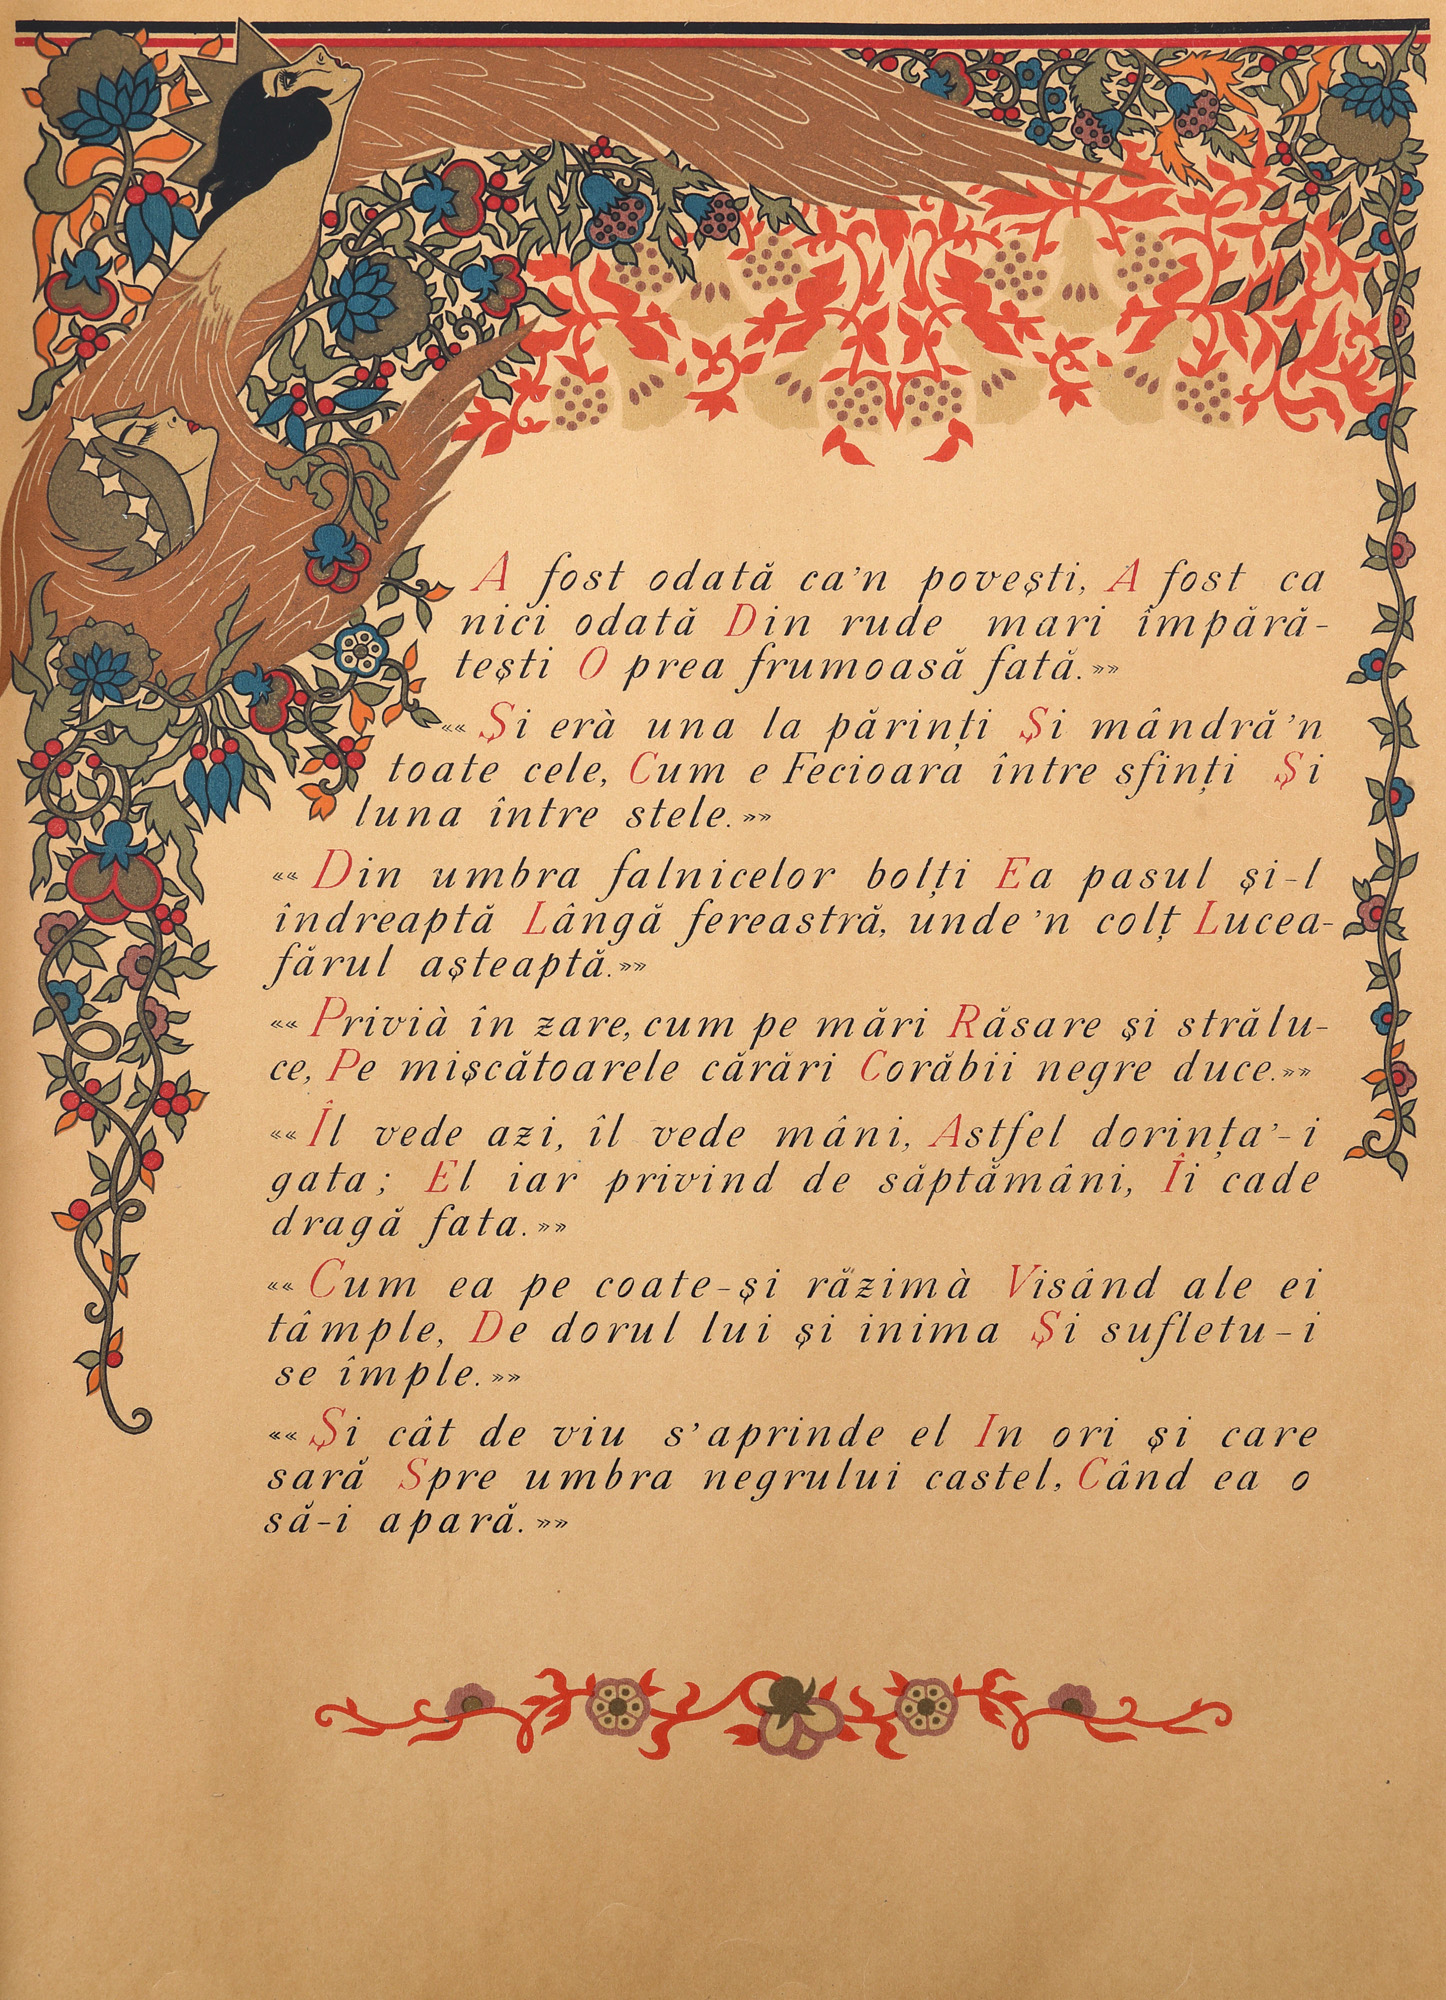 A fost odată ca'n povești, A fost ca
nici odată Din rude mari împără-
tești O prea frumoasă fată.»»
«« Și erà una la părinți Și mândră'n
toate cele, Cum e Fecioara între sfinți Și
luna între stele.»»
«« Din umbra falnicelor bolți Ea pasul și-l
îndreaptă Lângă fereastră, unde'n colț Lucea-
fărul așteaptă.»»
«« Privià în zare, cum pe mări Răsare și strălu-
ce, Pe mișcătoarele cărări Corăbii negre duce.»»
«« Îl vede azi, îl vede mâni, Astfel dorința'-i
gata; El iar privind de săptămâni, Îi cade
dragă fata.»»
«« Cum ea pe coate-și răzimà Visând ale ei
tâmple, De dorul lui și inima Și sufletu-i
se împle.»»
«« Și cât de viu s'aprinde el In ori și care
sară Spre umbra negrului castel, Când ea o
să-i apară.»»